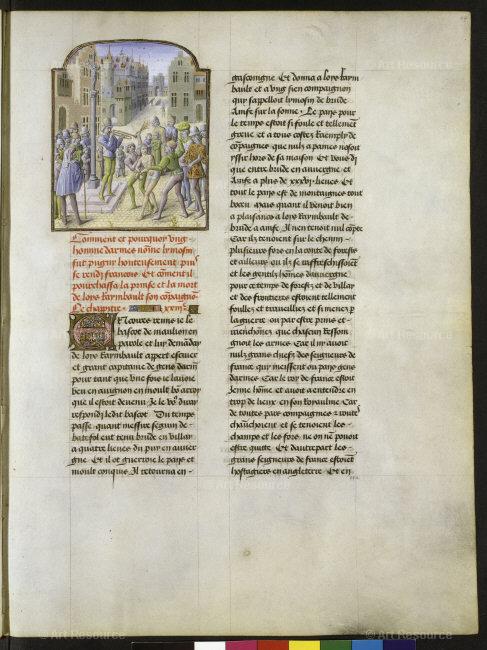 Comment et pourquoy ung
homme darmes nõme lymosin
fut pugny honteusement puis
se rendi francois Et cõment il
pourchassa la prinse et la mort
de loys Raymbault son cõpaignon
Le chapitre
Encores reuins ie le
bascot de mauleon en
parole et luy demãday
de loys Raymbault appert escuier
et grant capitaine de gens darmes
pour tant que une fois ie lauoie
veu en auignon en moult bõ arroy
que il estoit deuenu Je le vo9 diray
respondi ledit bascot Du temps
passe quant messire seguin de
batefol eut tenu bride en villay
a quatre lieues du puy en auuer
gne Et il ot guerroie le pays et
moult conquis Il retourna en
gascoingne Et donna a loys Raym
bault et a ung sien compaignon
quy sappelloit lymosin de bride
Anse sur la sonne Le pays pour
le temps estoit si foule et tellement
greue et a tous costez Raemply de
cõpaignes que nulz a paines nosoit
yssir hors de sa maison Et vous dy
que entre bride en auuergne et
Anse a plus de xxxvj lieues Et
tout le pays est de montaignes tout
mais quant il venoit bien
a plaisance a loys Raymbault de
bride a anse Il nen tenoit nul cõpte
Car ilz tenoient sur le chemin
plusieurs fors en la conte de forestz
et ailleurs ou ilz se raffreschissoient
et les gentilz hõmes dauuergne
pour ce temps de forestz et de vellay
et des frontieres estoient tellement
foullez et traueilliez et si menez p
la guerre ou par estre prins et
renchõnez que chascun ressoin
gnoit les armes Car il ny auoit
nulz grans chiefz des seigneurs de
france quy meissent ou pays gens
darmes Car le roy de france estoit
Jenne hõme et auoit a entendre en
trop de lieux en son Royaulme Car
de toutes pars compaignes et routes
cheuauchoient et se tenoient les
champs et les fors ne on nẽ pouoit
estre quitte Et daultrepart les
grans seigneurs de france estoient
hostagiers en angleterre Et en
© Art Resource
© Art Resource